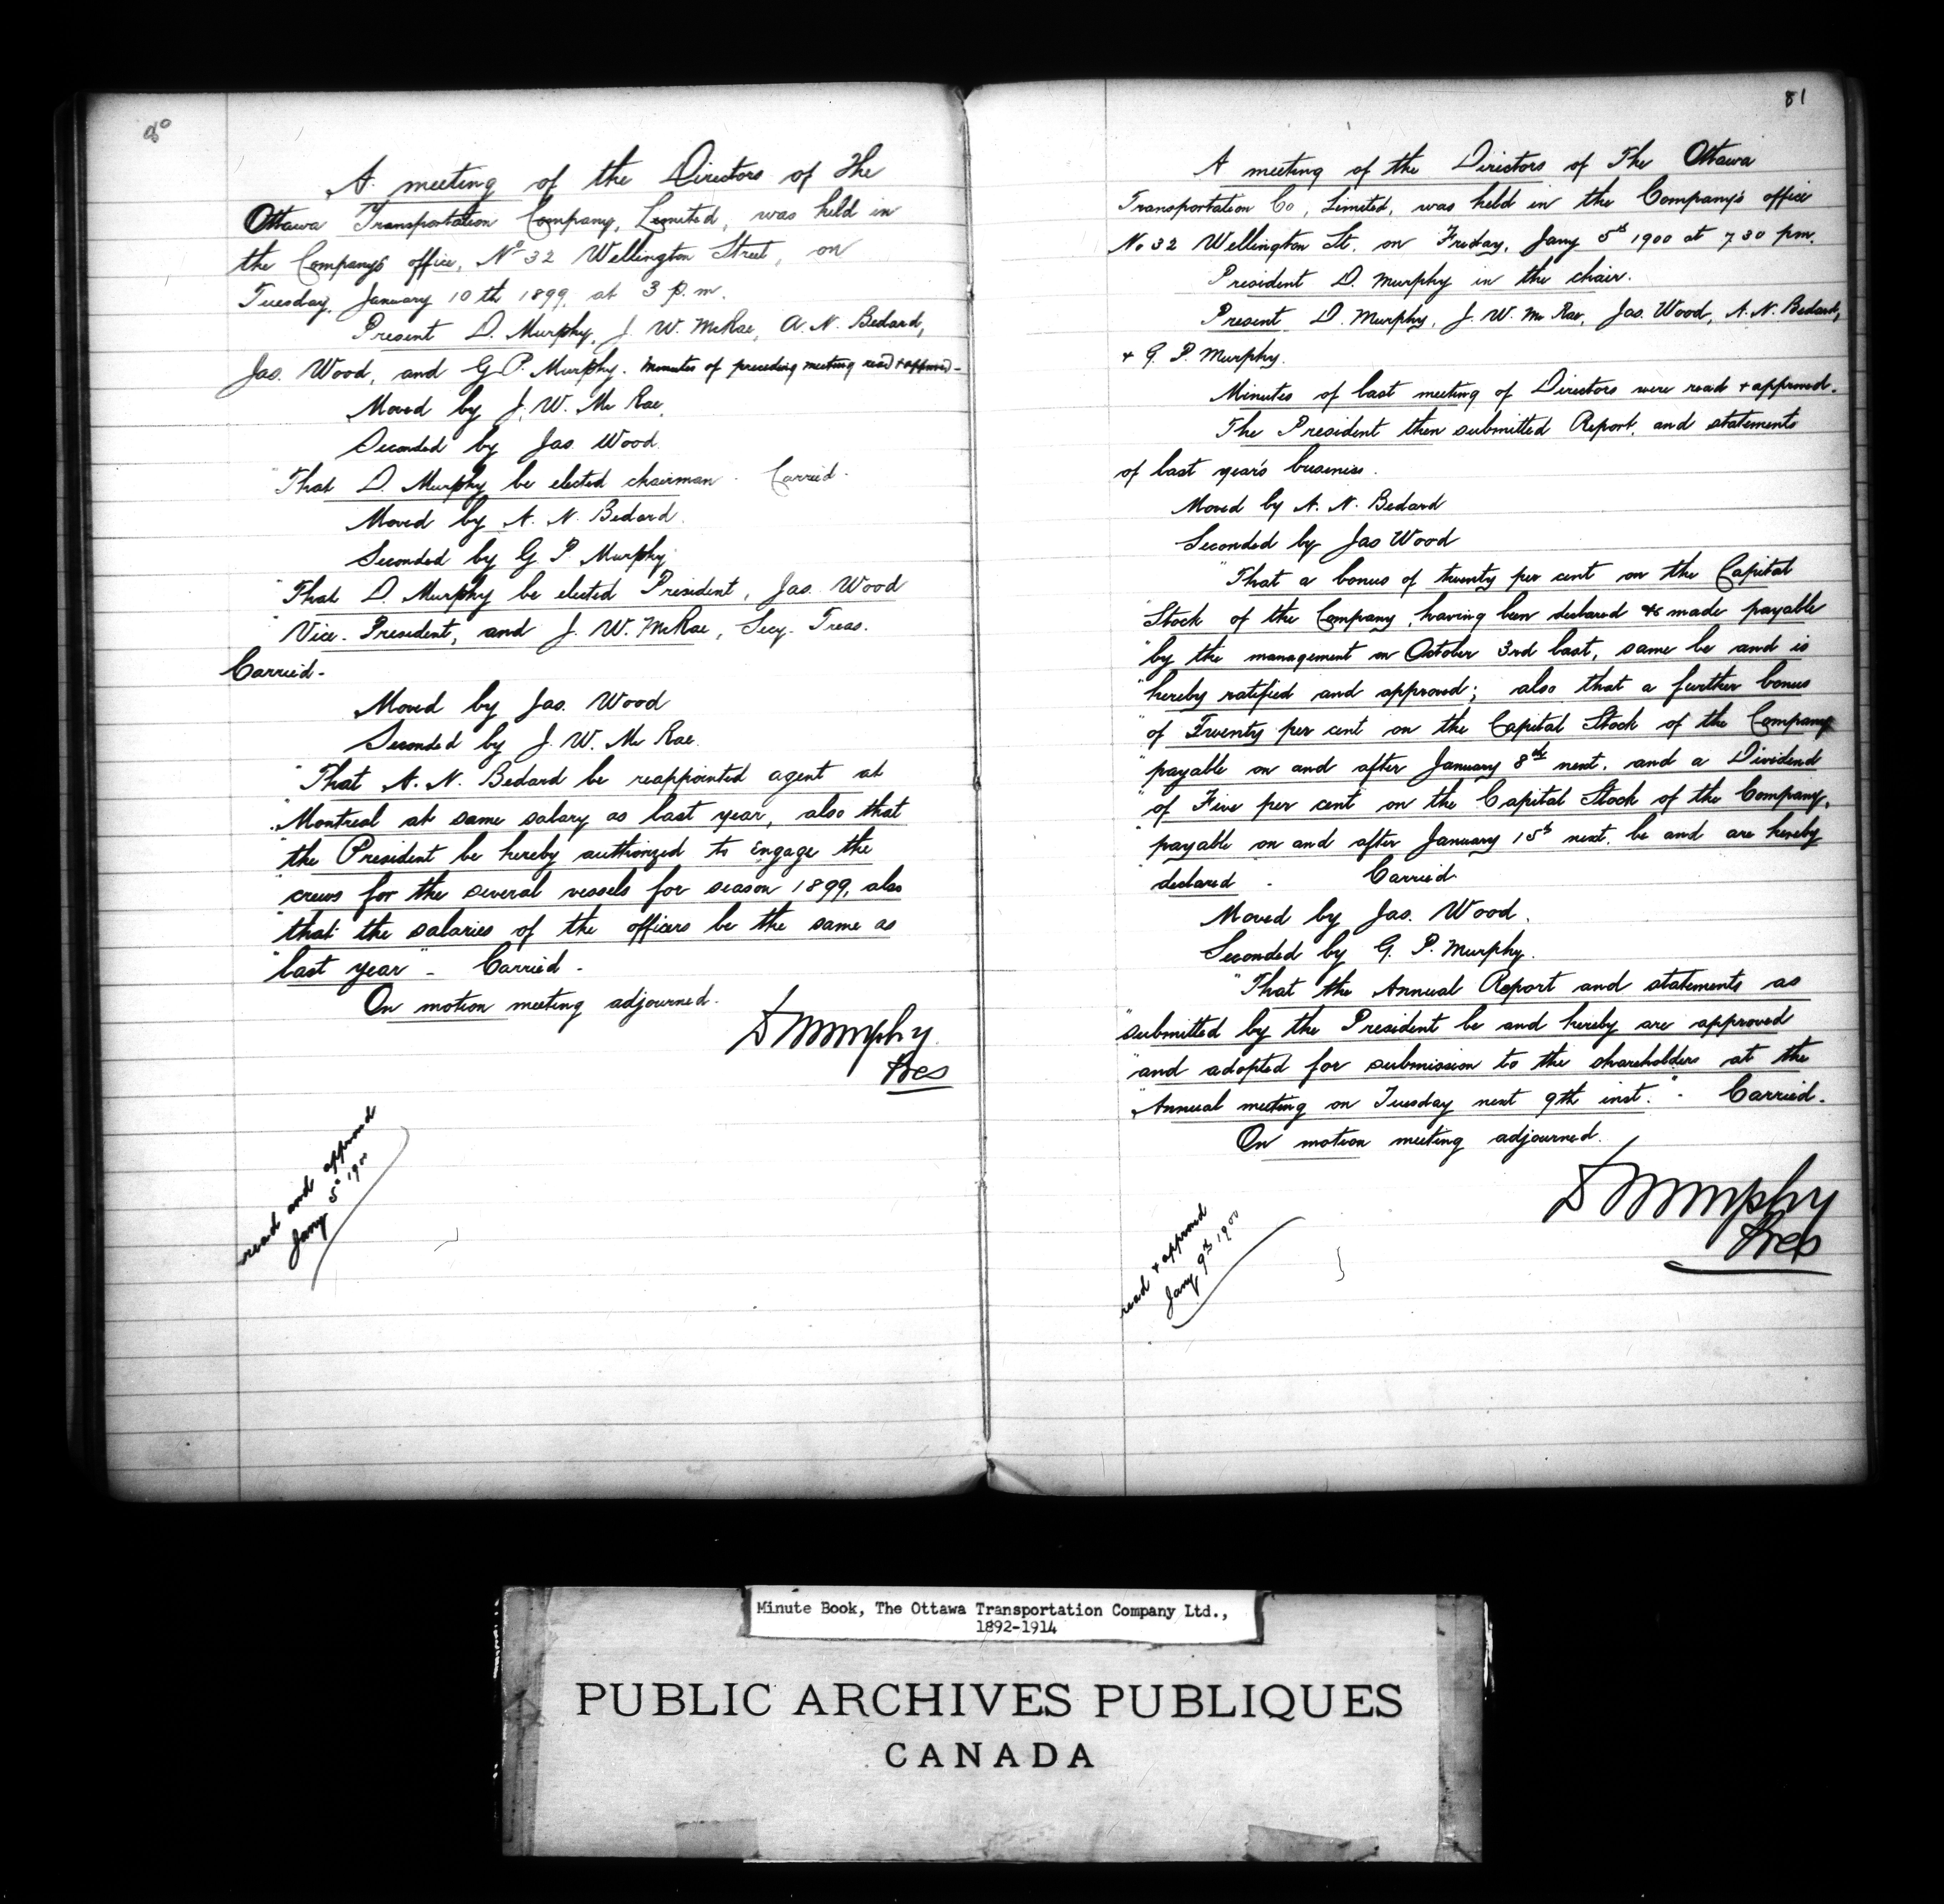 80
A meeting of the Directors of The
Ottawa Transportation Company, Limited, was held in
the Company's office, No 32 Wellington Street, on
Tuesday, January 10th 1899 at 3 p.m.
Present D. Murphy, J. W. McRae, A. N. Bedard,
Jas. Wood, and G. P. Murphy. Minutes of preceding meeting read + approved -
Moved by J. W. Mc Rae,
Seconded by Jas Wood
"That D. Murphy be elected chairman. Carried.
Moved by A. N. Bedard.
Seconded by G P Murphy
"That D. Murphy be elected President, Jas. Wood
"Vice-President, and J. W. McRae, Secy-Treas.
Carried-
Moved by Jas. Wood
Seconded by J. W. Mc Rae.
"That A. N. Bedard be reappointed agent at
"Montreal at same salary as last year, also that
"the President be hereby authorized to engage the
"crews for the several vessels for season 1899, also
"that the salaries of the officers be the same as
"last year" - Carried -
On motion meeting adjourned.
D Murphy
Pres
read and approved
Jany 5° 1900
81
A meeting of the Directors of The Ottawa
Transportation Co, Limited, was held in the Company's office
No 32 Wellington St. on Friday, Jany 5th 1900 at 7.30 pm.
President D. Murphy in the chair.
Present D. Murphy, J. W. Mc Rae, Jas. Wood, A. N. Bedard,
+ G. P. Murphy.
Minutes of last meeting of Directors were read + approved.
The President then submitted Report, and statements
of last year's business.
Moved by A. N. Bedard
Seconded by Jas Wood
"That a bonus of twenty per cent on the Capital
"Stock of the Company, having been declared & made payable
"by the management on October 3rd last, same be and is
"hereby ratified and approved; also that a further bonus
"of Twenty per cent on the Capital Stock of the Company
"payable on and after January 8th next, and a Dividend
"of Five per cent on the Capital Stock of the Company,
"payable on and after January 15th next, be and are hereby
"declared. Carried
Moved by Jas. Wood.
Seconded by G. P. Murphy.
"That the Annual Report and statements as
"submitted by the President be and hereby are approved
"and adopted for submission to the shareholders at the
"Annual meeting on Tuesday next 9th inst." - Carried.
On motion meeting adjourned.
D Murphy
Pres
read + approved
Jany 9th 1900
Minute Book, The Ottawa Transportation Company Ltd.,
1892-1914
PUBLIC ARCHIVES PUBLIQUES
CANADA